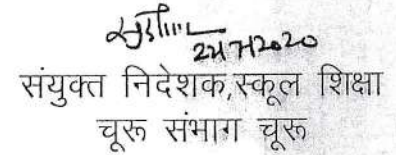 24/7/2020
संयुक्त निदेशक,स्कूल शिक्षा
चूरू संभाग चूरू